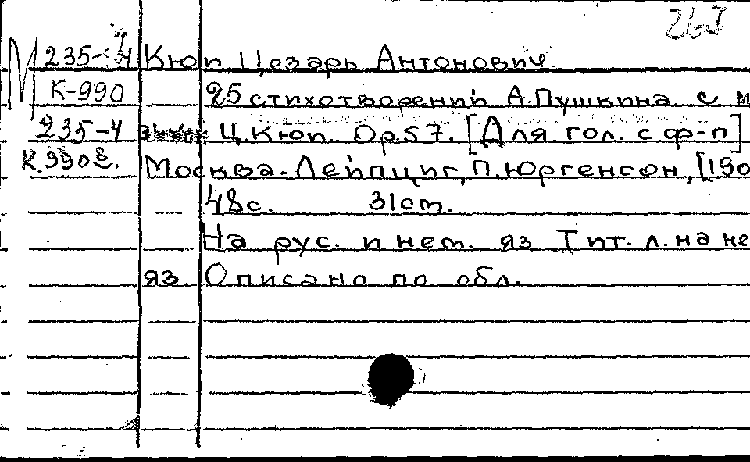 263
М 235-4 Кюи Цезарь Антонович
К-990 25 стихотворений А.Пушкина с м
235-4 Ц.Кюи. Op.57. [Для гол. с ф-п]
К.990 Москва-Лейпциг, П.Юргенсон, [190
48с. 31cm.
На рус. и нем. яз Тит. л. на не
яз Описано по обл.